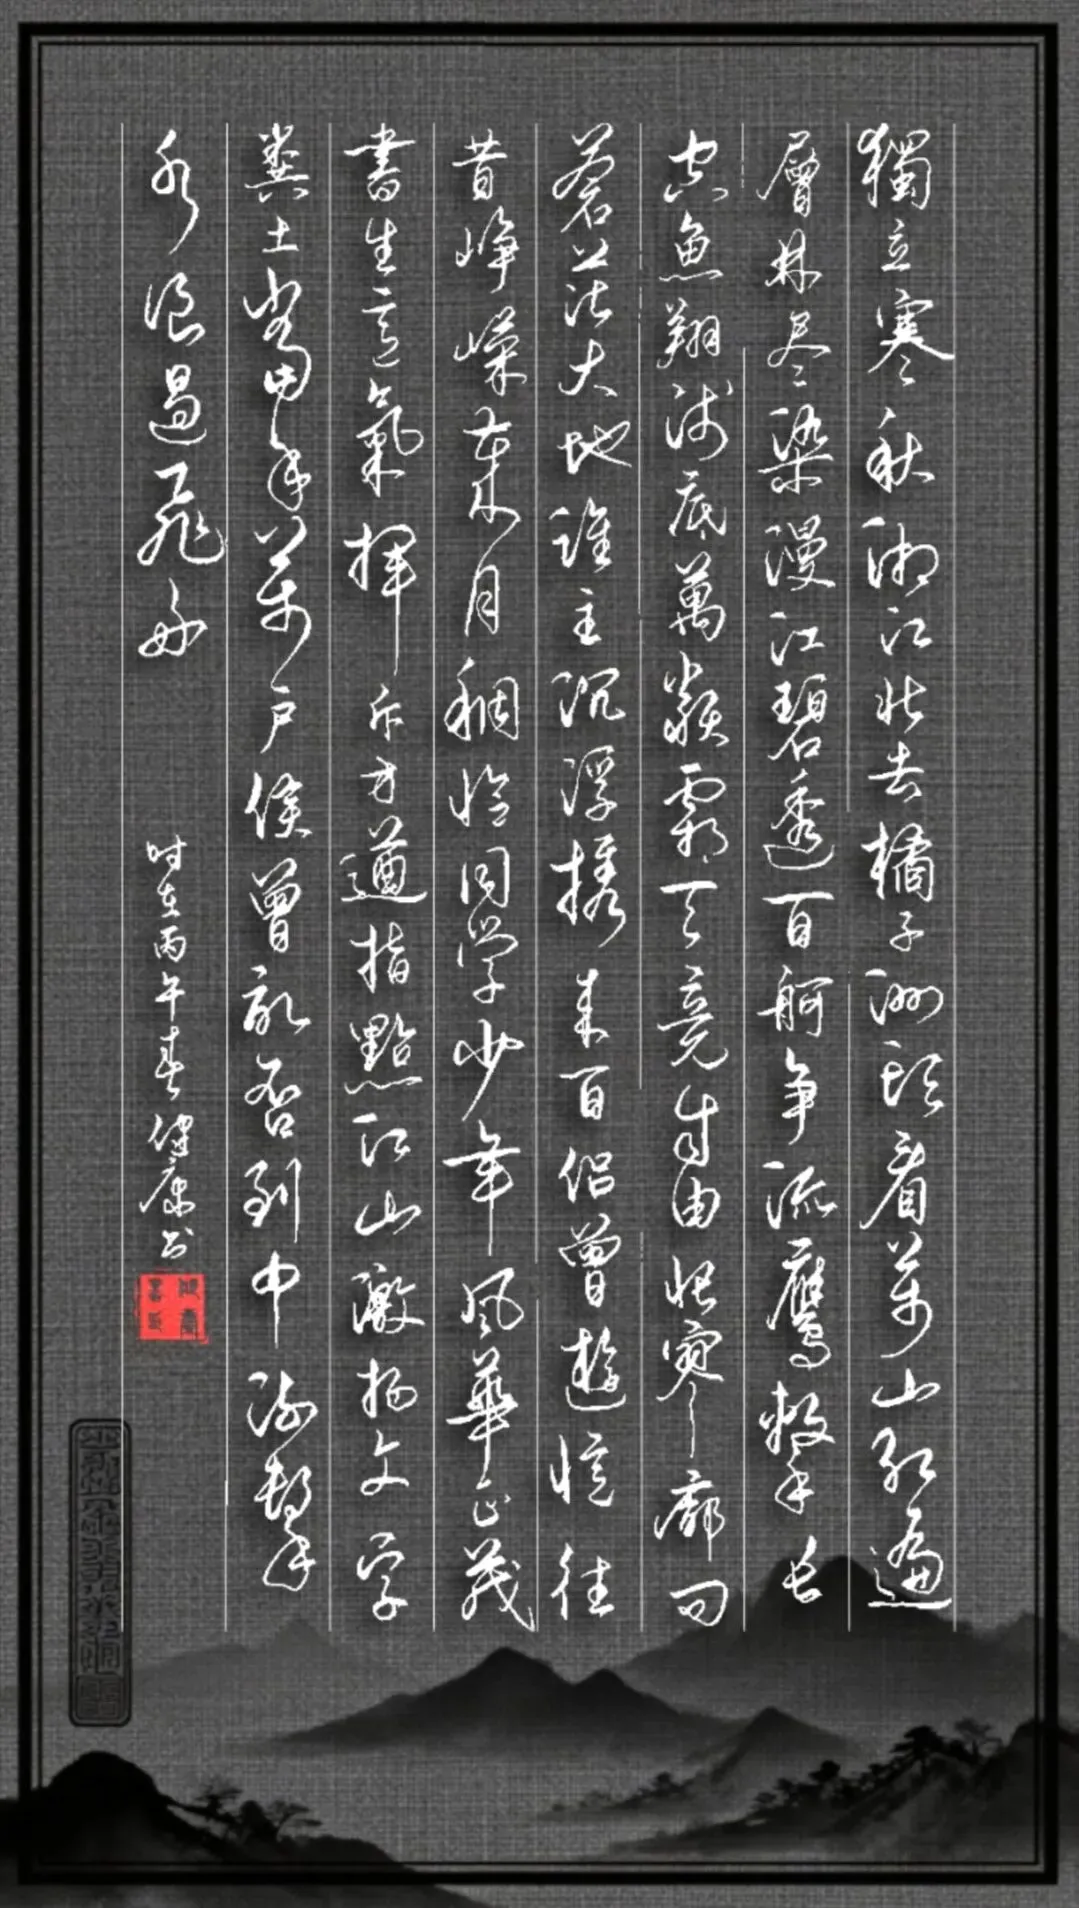 獨立寒秋湘江北去橘子洲头看萬山红遍
層林尽染漫江碧透百舸争流鷹擊长
空魚翔浅底萬類霜天竞自由怅寥廓问
蒼茫大地谁主沉浮携来百侣曾遊憶往
昔峥嵘歲月稠恰同学少年风華正茂
書生意氣揮斥方遒指點江山激扬文字
糞土當年萬户侯曾记否到中流擊
水浪遏飛舟
时在丙午春健康书